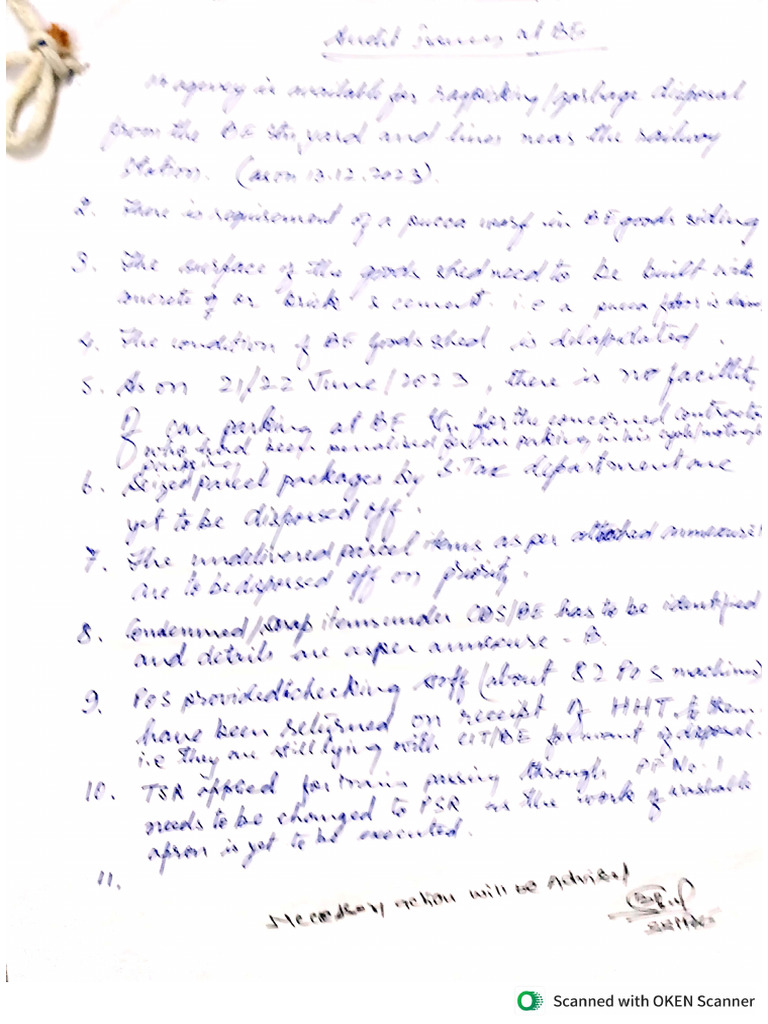 Audit issues at BE
No agency is available for ragpicking/garbage disposal
from the BE stn, yard and lines near the railway
station. (as on 13.12.2023).
2. There is requirement of a pucca in BE goods siding
3. The surface of the goods shed need to be built with
concrete or brick & cement. i.e a pucca floor is
4. The condition of BE Goods shed is dilapitated.
5. As on 21/22 June/2023, there is no facility
of car parking at BE Stn for the concerned contractor
who had been penalised for car parking in his cycle/motorcycle
parking
6. Seized parcel packages by S-Tax department are
yet to be dispersed off.
7. The undelivered parcel items as per attached annexure
are to be dispersed off on priority.
8. Condemned/scrap items under COS/BE has to be identified
and details are as per annexure - B.
9. POS provided checking staff (about 82 POS machines)
have been returned on receipt of HHT & them
i.e they are still lying with CIT/BE for want of disposal.
10. TSR applied for trains passing through PF No. 1
needs to be changed to PSR as the work of washable
apron is yet to be executed.
11.
Necessary action will be Advised
Scanned with OKEN Scanner